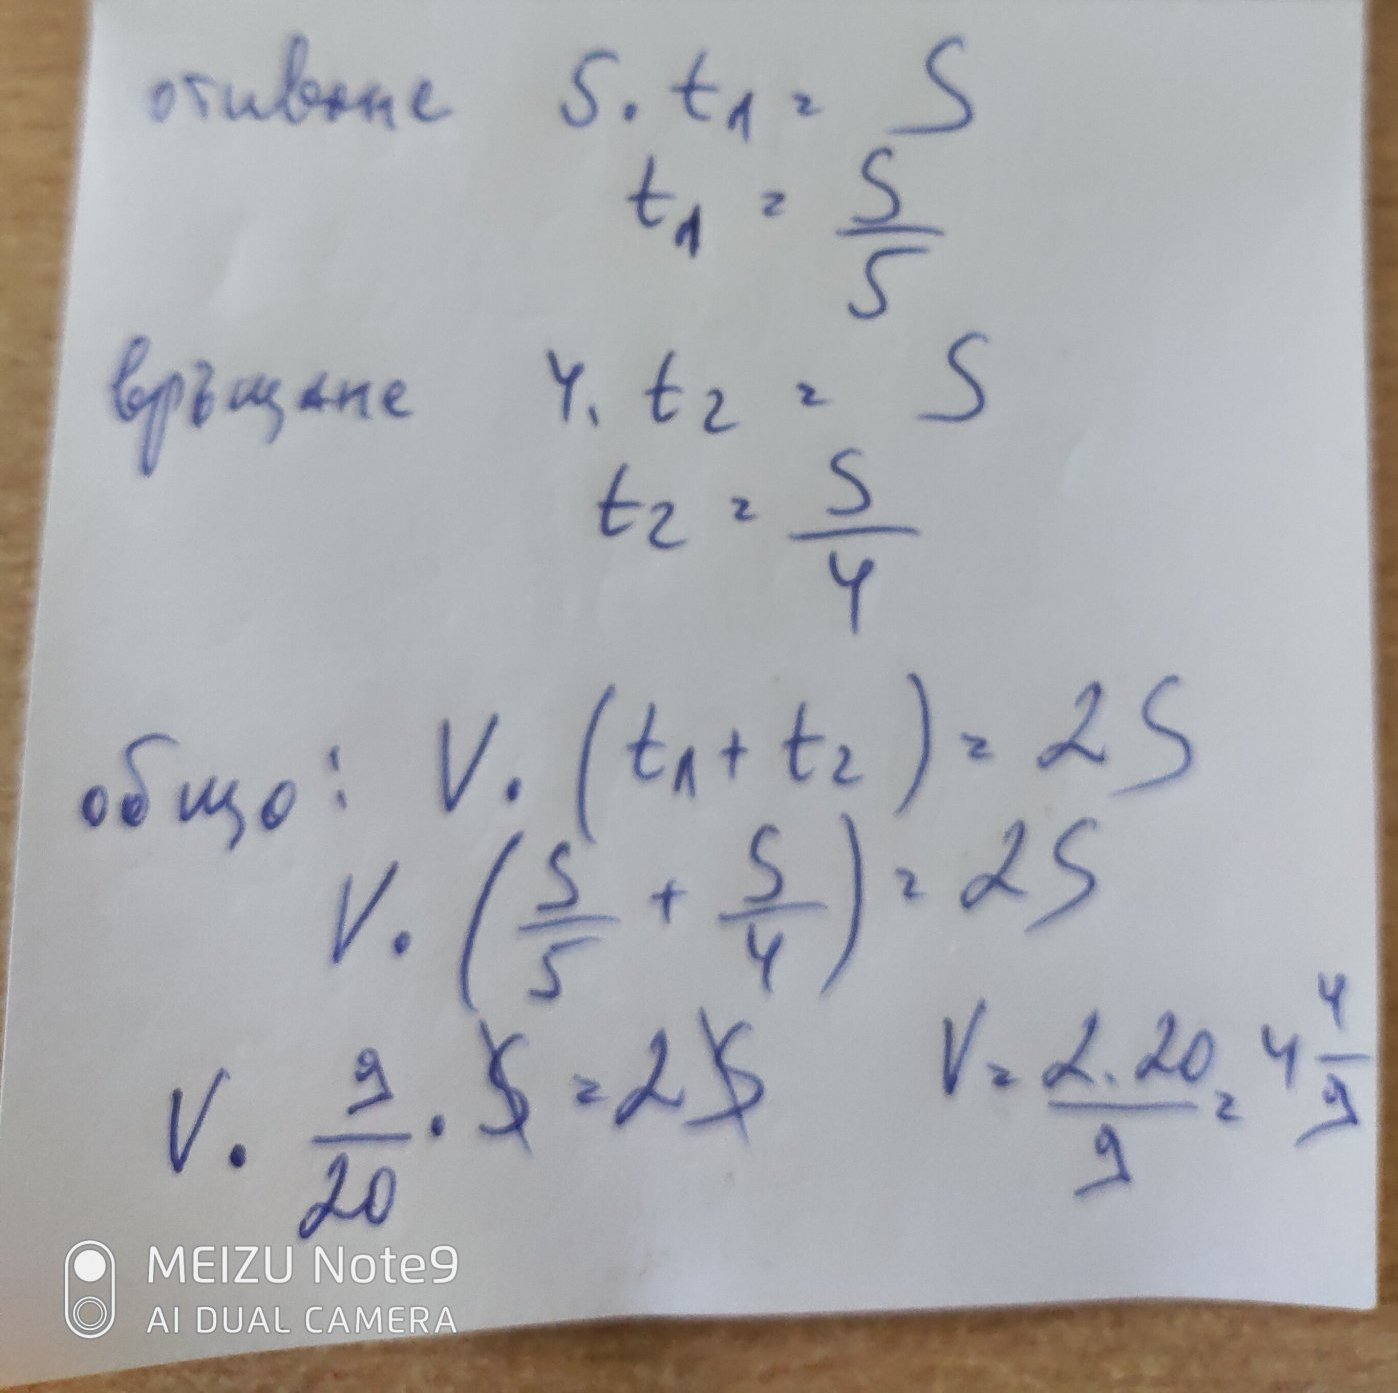 отиване 5. t₁ = S
t₁ = S/5
връщане 4. t₂ = S
t₂ = S/4
общо: V. (t₁ + t₂) = 2S
V. (S/5 + S/4) = 2S
V. 9/20 . S = 2S
V = 2.20/9 = 4 4/9
MEIZU Note9
AI DUAL CAMERA